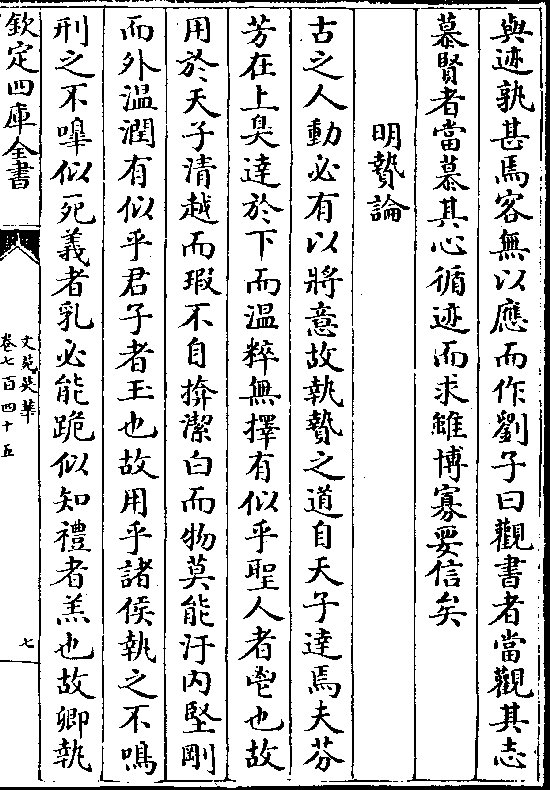 與迹孰甚焉客無以應而作劉子曰觀書者當觀其志
慕賢者當慕其心循迹而求雖博寡要信矣
明贄論
古之人動必有以將意故執贄之道自天子達焉夫芬
芳在上臭達於下而溫粹無擇有似乎聖人者鬯也故
用於天子清越而瑕不自揜潔白而物莫能汙內堅剛
而外溫潤有似乎君子者玉也故用乎諸侯執之不鳴
刑之不嘷似死義者乳必能跪似知禮者羔也故卿執
欽定四庫全書
文苑英華
卷七百四十五
七